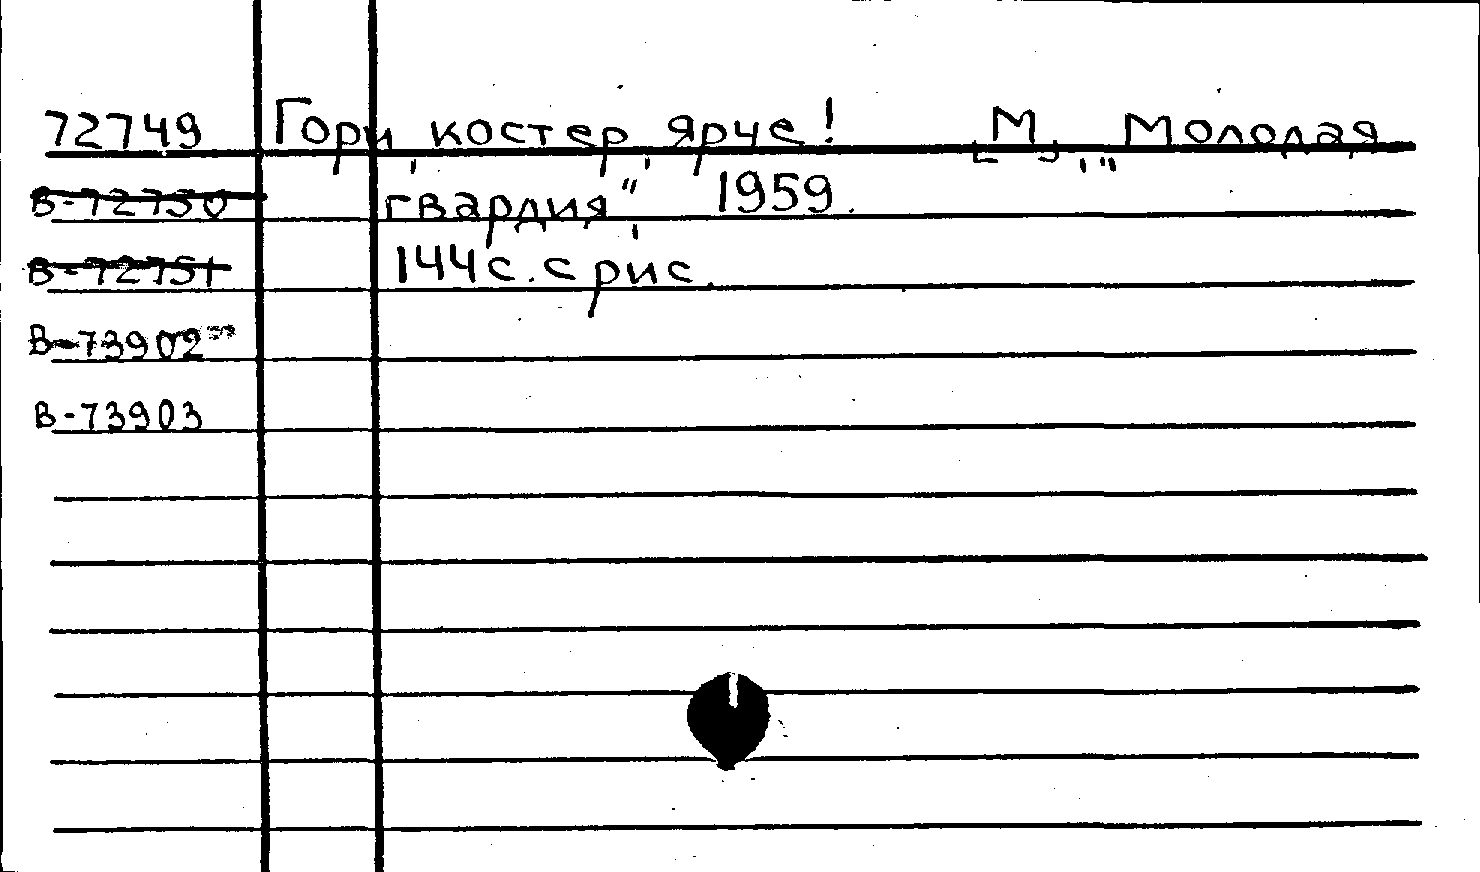 72749 Гори, костер, ярче! [М], „Молодая
В-72750 гвардия", 1959.
В-72751 144 с. с рис.
В-73902
В-73903